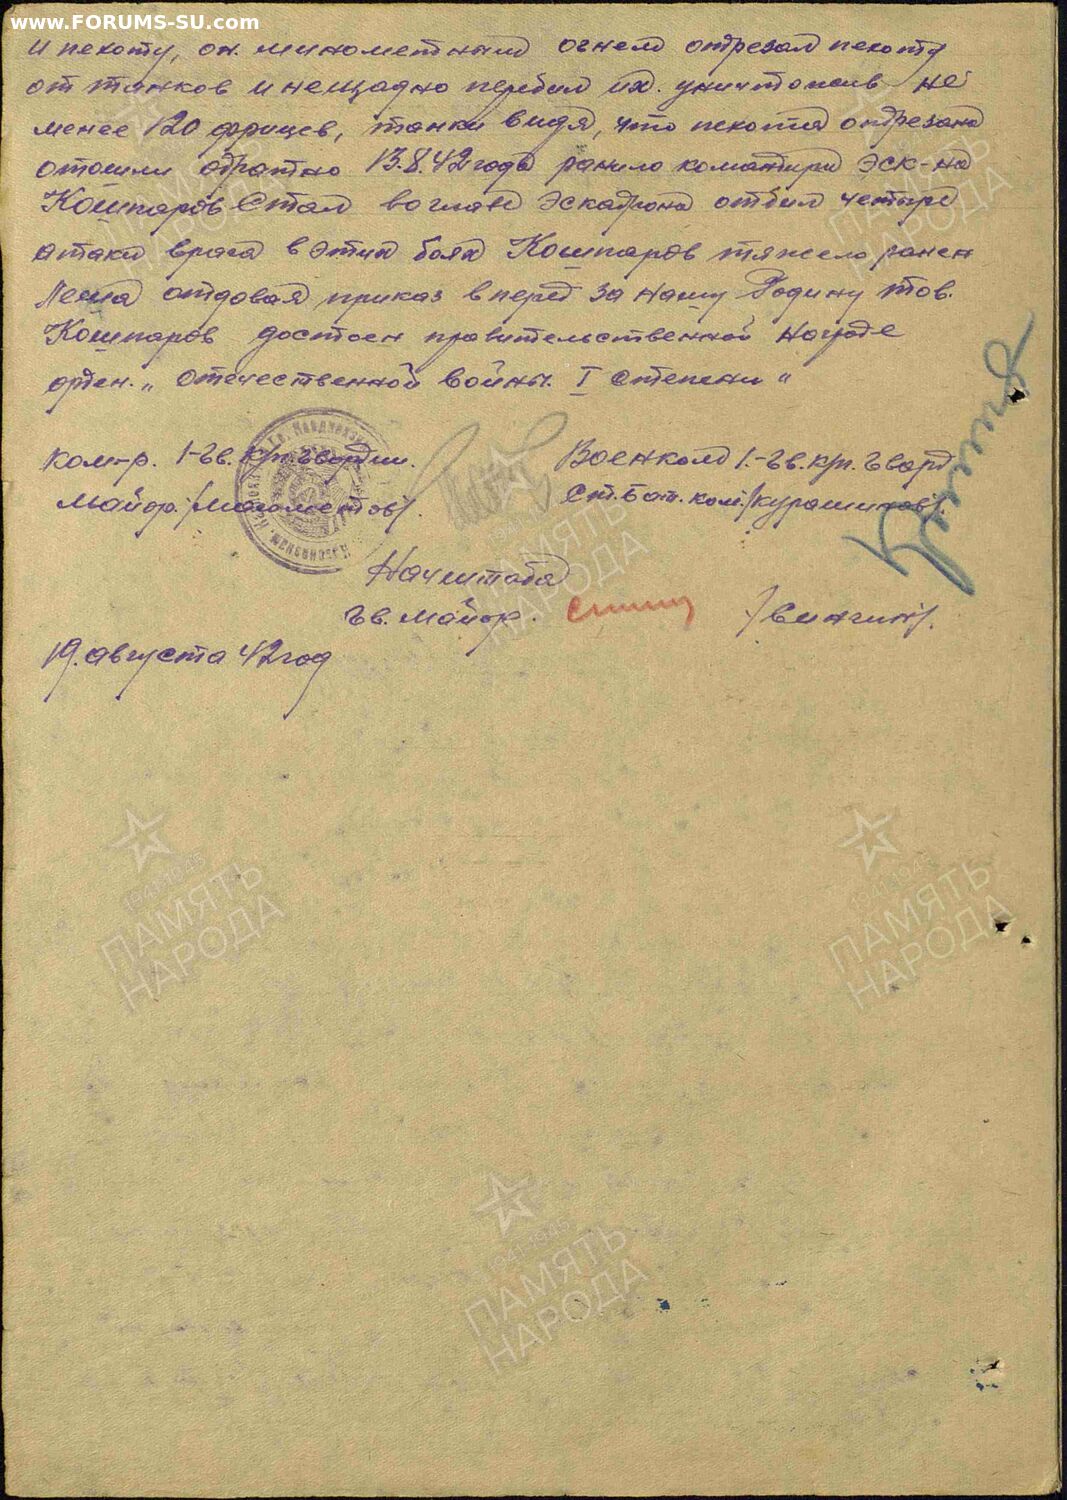 www.FORUMS-SU.com
и пехоту, он минометным огнем отрезал пехоту
от танков и нещадно перебил их. уничтожив не
менее 120 фрицев, танки видя, что пехота отрезана
отошли обратно 13.8.42 года ранило командира эск-на
Кошпаров Стал во главе Эскадрона отбил четыре
атаки врага в этих боях Кошпаров тяжело ранен
Лежа отдовая приказ вперед за нашу Родину тов.
Кошпаров достоен правительственной награде
орден „ отечественной войны. I степени "
ком-р. 1-Гв. кп. Гвардии.
Военком 1.-Гв. кп. Гвард
майор. /мамометов/.
ст. бат. ком. /курашинов/.
Начштаба
Гв. майор.
19. августа 42 год
1941-1945
ПАМЯТЬ
НАРОДА
1941-1945
ПАМЯТЬ
НАРОДА
1941-1945
ПАМЯТЬ
НАРОДА